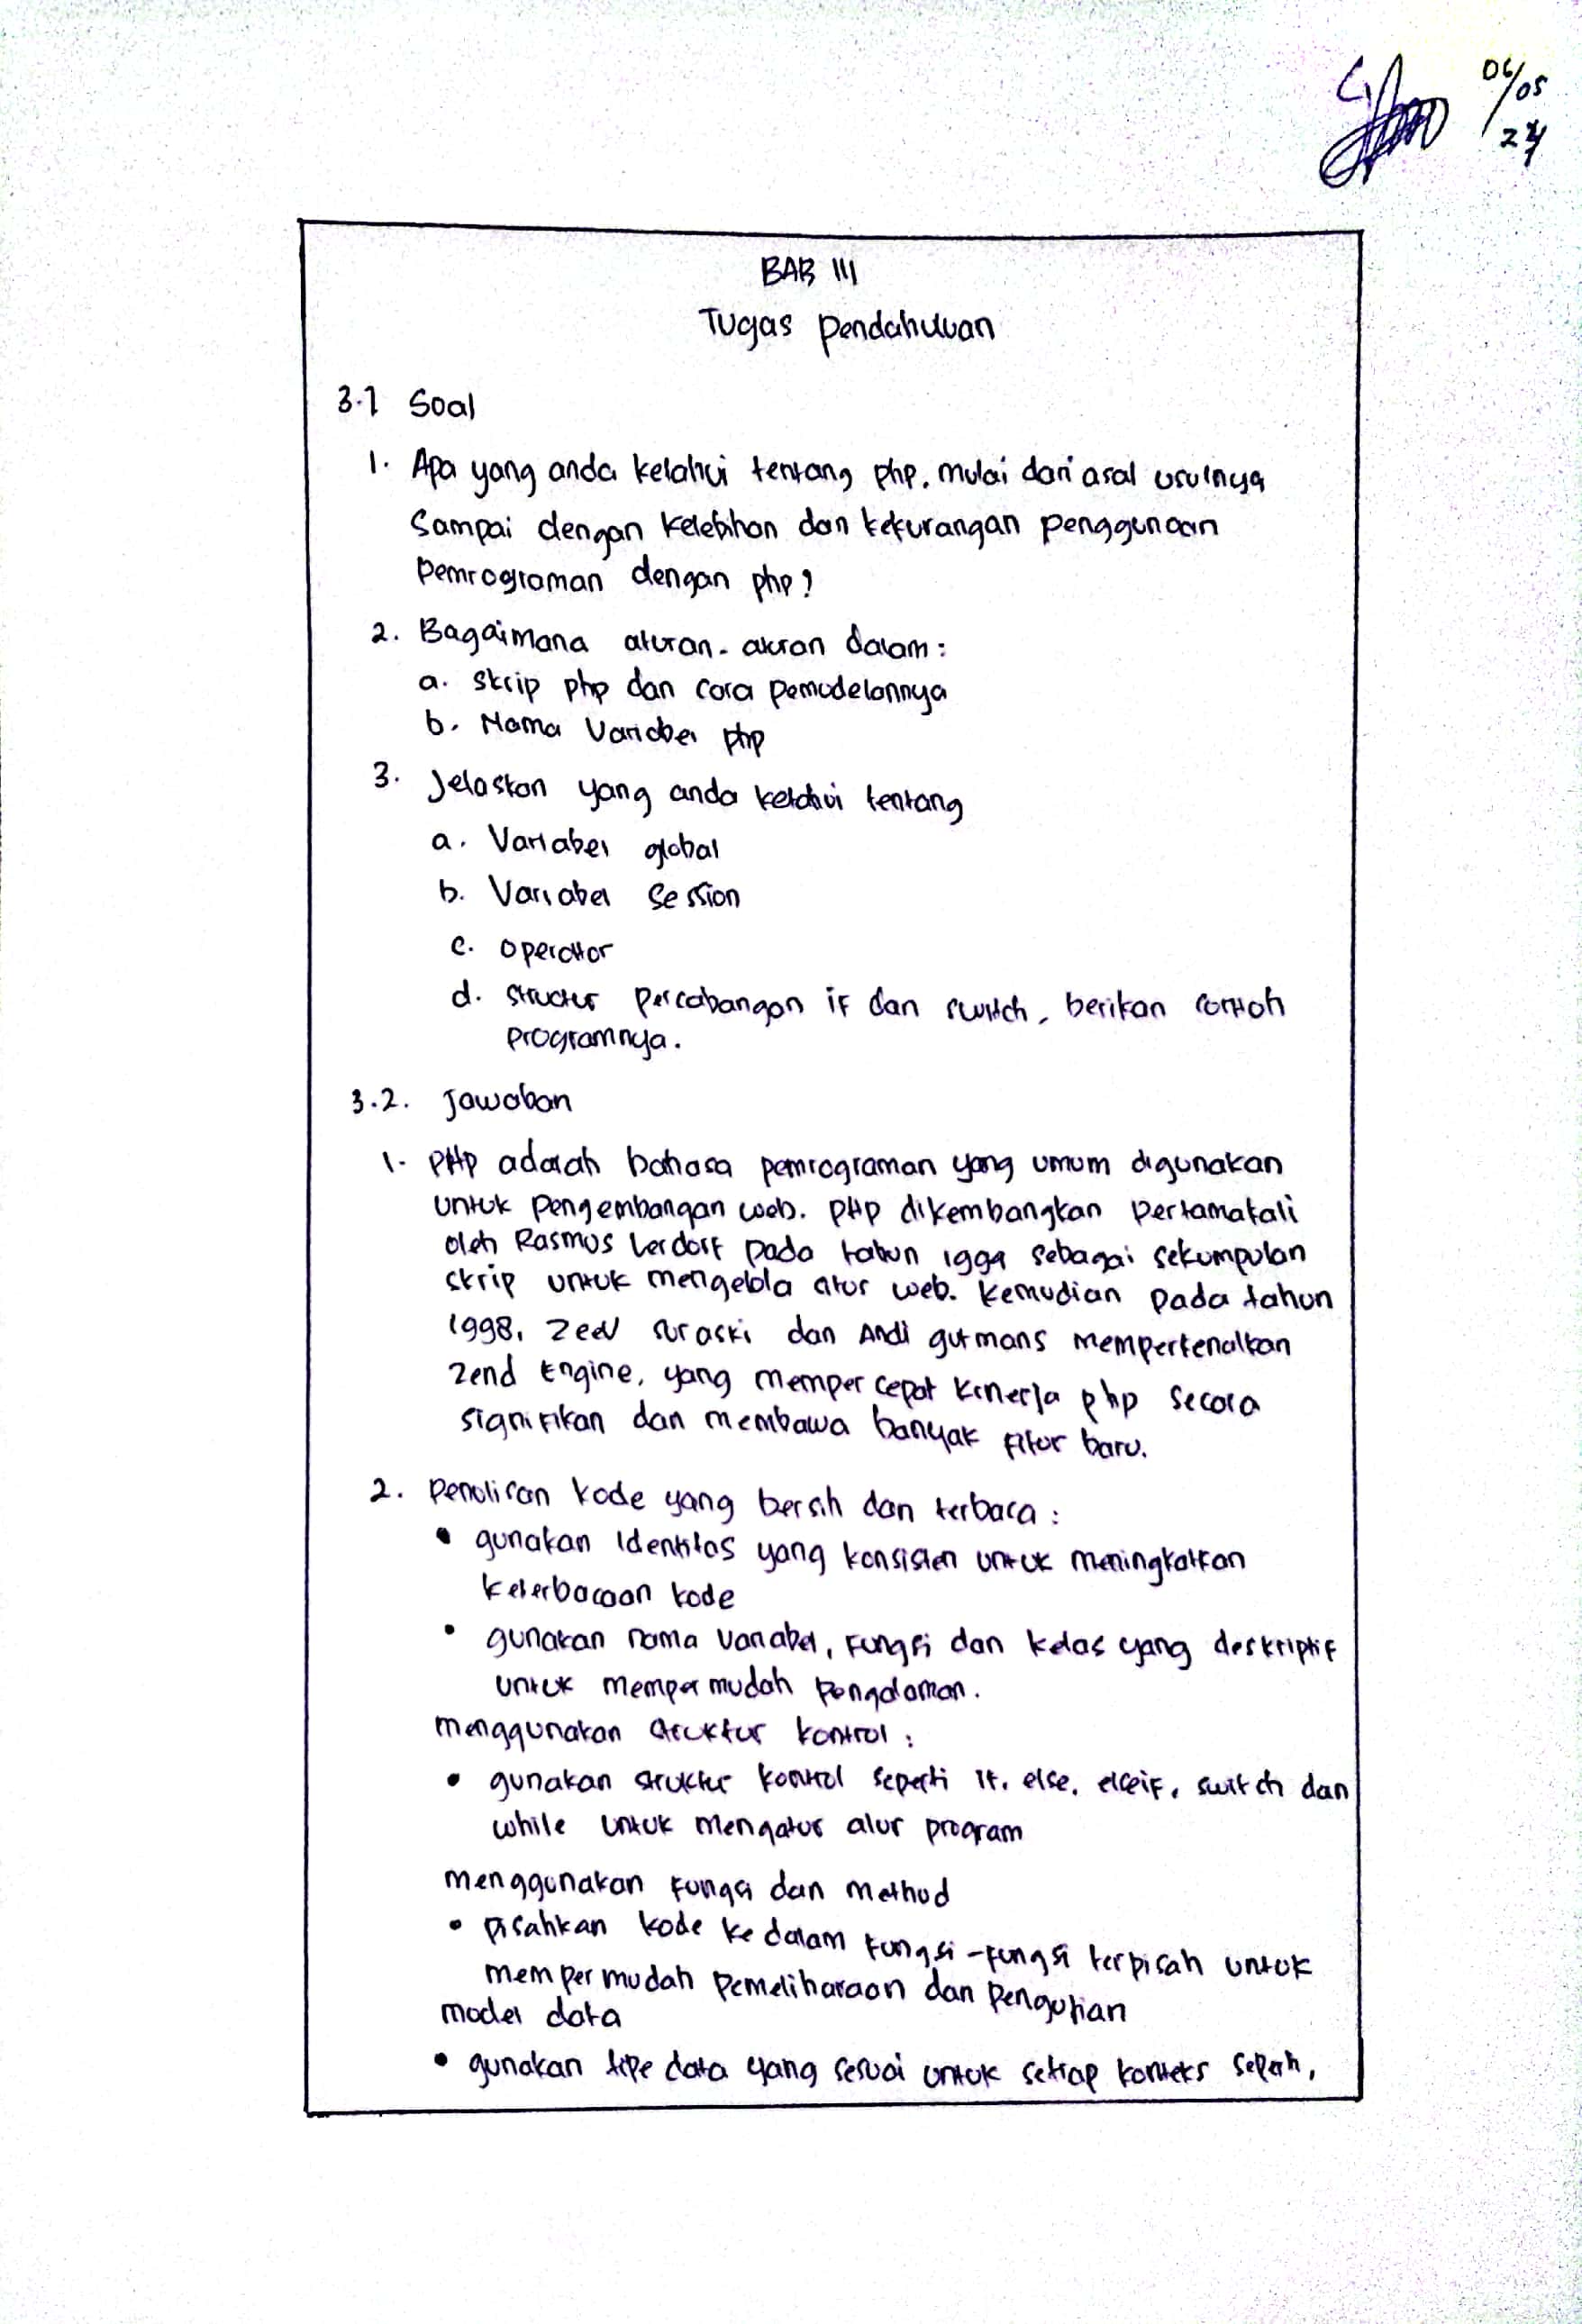 06/05
24
BAB III
Tugas Pendahuluan
3.1 Soal
1. Apa yang anda ketahui tentang php, mulai dari asal usulnya
Sampai dengan kelebihan dan kekurangan penggunaan
Pemrograman dengan php?
2. Bagaimana aturan-aturan dalam:
a. Skrip php dan cara pemodelannya
b. Nama Variabel php
3. Jelaskan yang anda ketahui tentang
a. Variabel global
b. Variabel Session
c. Operator
d. Structur Percabangan if dan switch, berikan contoh
Programnya.
3.2. Jawaban
1. PHP adalah bahasa pemrograman yang umum digunakan
untuk Pengembangan web. PHP dikembangkan Pertamakali
oleh Rasmus Lerdorf Pada tahun 1994 sebagai sekumpulan
skrip untuk mengelola situs web. Kemudian Pada tahun
1998, Zeev Suraski dan Andi gutmans memperkenalkan
Zend Engine, yang mempercepat kinerja php Secara
signifikan dan membawa banyak fitur baru.
2. Penulisan kode yang bersih dan terbaca:
• gunakan Identitas yang konsisten untuk meningkatkan
keterbacaan kode
• gunakan nama Variabel, Fungsi dan kelas yang deskriptif
untuk mempermudah
menggunakan struktur kontrol:
• gunakan struktur kontrol seperti if, else, elseif, switch dan
while untuk mengatur alur program
menggunakan Fungsi dan method
• Pisahkan kode ke dalam Fungsi-Fungsi terpisah untuk
mempermudah Pemeliharaan dan Pengujian
model data
• gunakan tipe data yang sesuai untuk setiap konteks seperti,